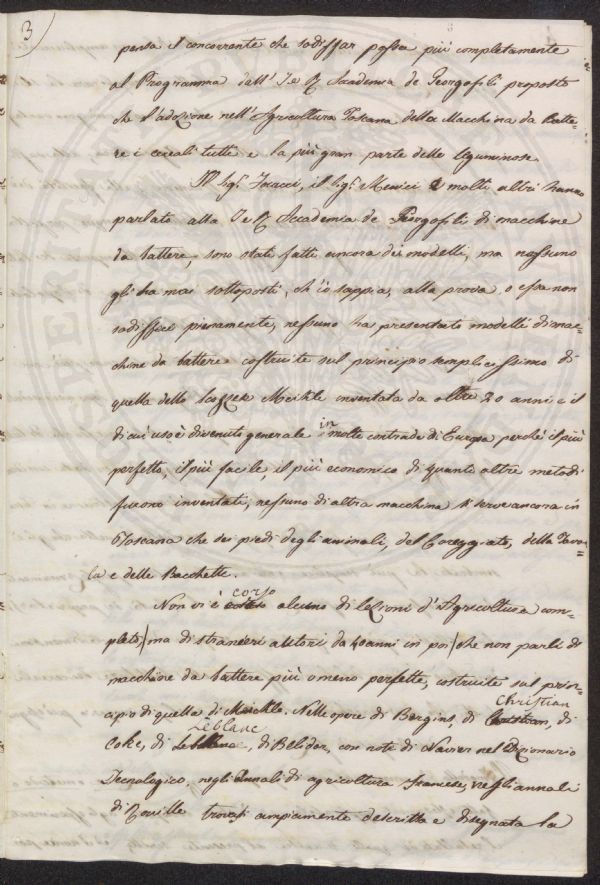 3
pensa il concorrente che sodisfar possa più completamente
al Programma dall' I e R Accademia de Georgofili proposto
che l'adozione nell'Agricoltura Toscana della Macchina da Batte=
re i cereali tutti e la più gran parte delle leguminose
Il Sig.r il Sig.r e molti altri hanno
parlato alla I e R Accademia de Georgofili di macchine
da battere, sono stati fatti ancora dei modelli, ma nessuno
gli ha mai sottoposti, ch'io sappia, alla prova, o essa non
sodisfece pienamente, nessuno ha presentato modelli di mac=
chine da battere costruite sul principio semplicissimo di
quella dello Scozzese Meickle inventata da oltre 20 anni e il
di cui uso è divenuto generale in molte contrade di Europa perchè il più
perfetto, il più facile, il più economico di quanti altri metodi
furono inventati, nessuno di altra macchina si serve ancora in
Toscana che dei piedi degli animali, del Coreggiato, della Tavo=
la e delle Bacchette.
Non vi è corso alcuno di lezioni d'Agricoltura com=
pleto, (ma di stranieri autori da 40 anni in poi) che non parli di
macchine da battere più o meno perfette, costruite sul prin=
cipio di quella di Meickle. Nelle opere di Borgnis, di Christian, di
Coke, di Leblanc, di Belidor, con note di Navier nel Dizionario
Tecnologico, negli Annali di agricoltura francese, negli annali
di Roville trovasi ampiamente descritta e disegnata la